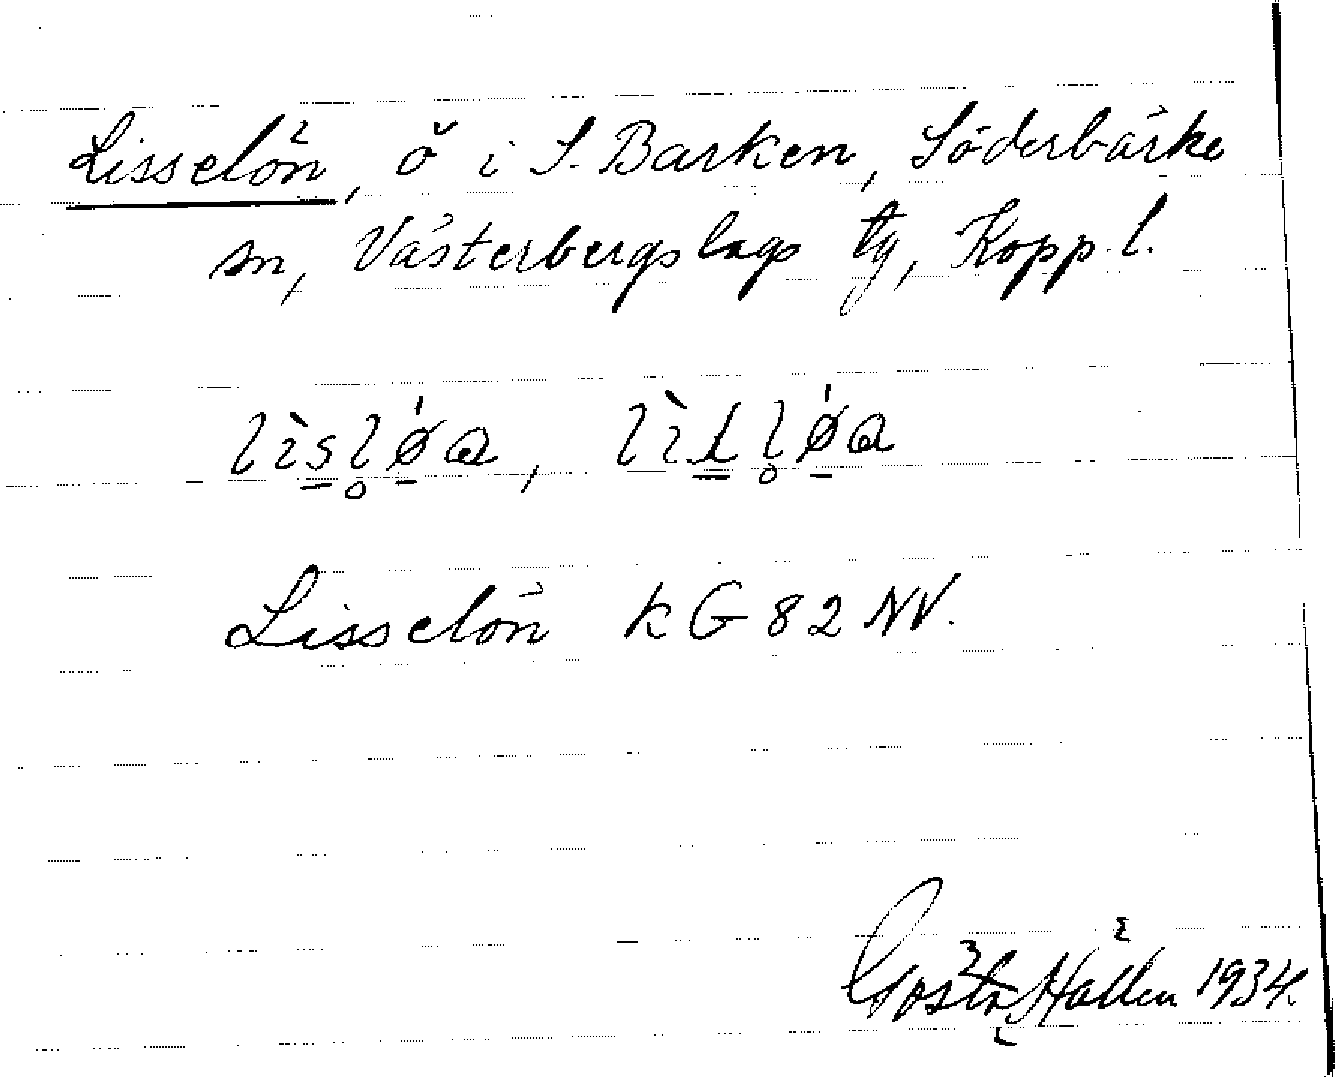 Lisselön, ö i S. Barken, Söderbärke
sn, Västerbergslags tg, Kopp. l.
lìsl̥ǿa, lìtl̥ǿa
Lisselön kG 82 NV.
Gösta Hallén 1934.